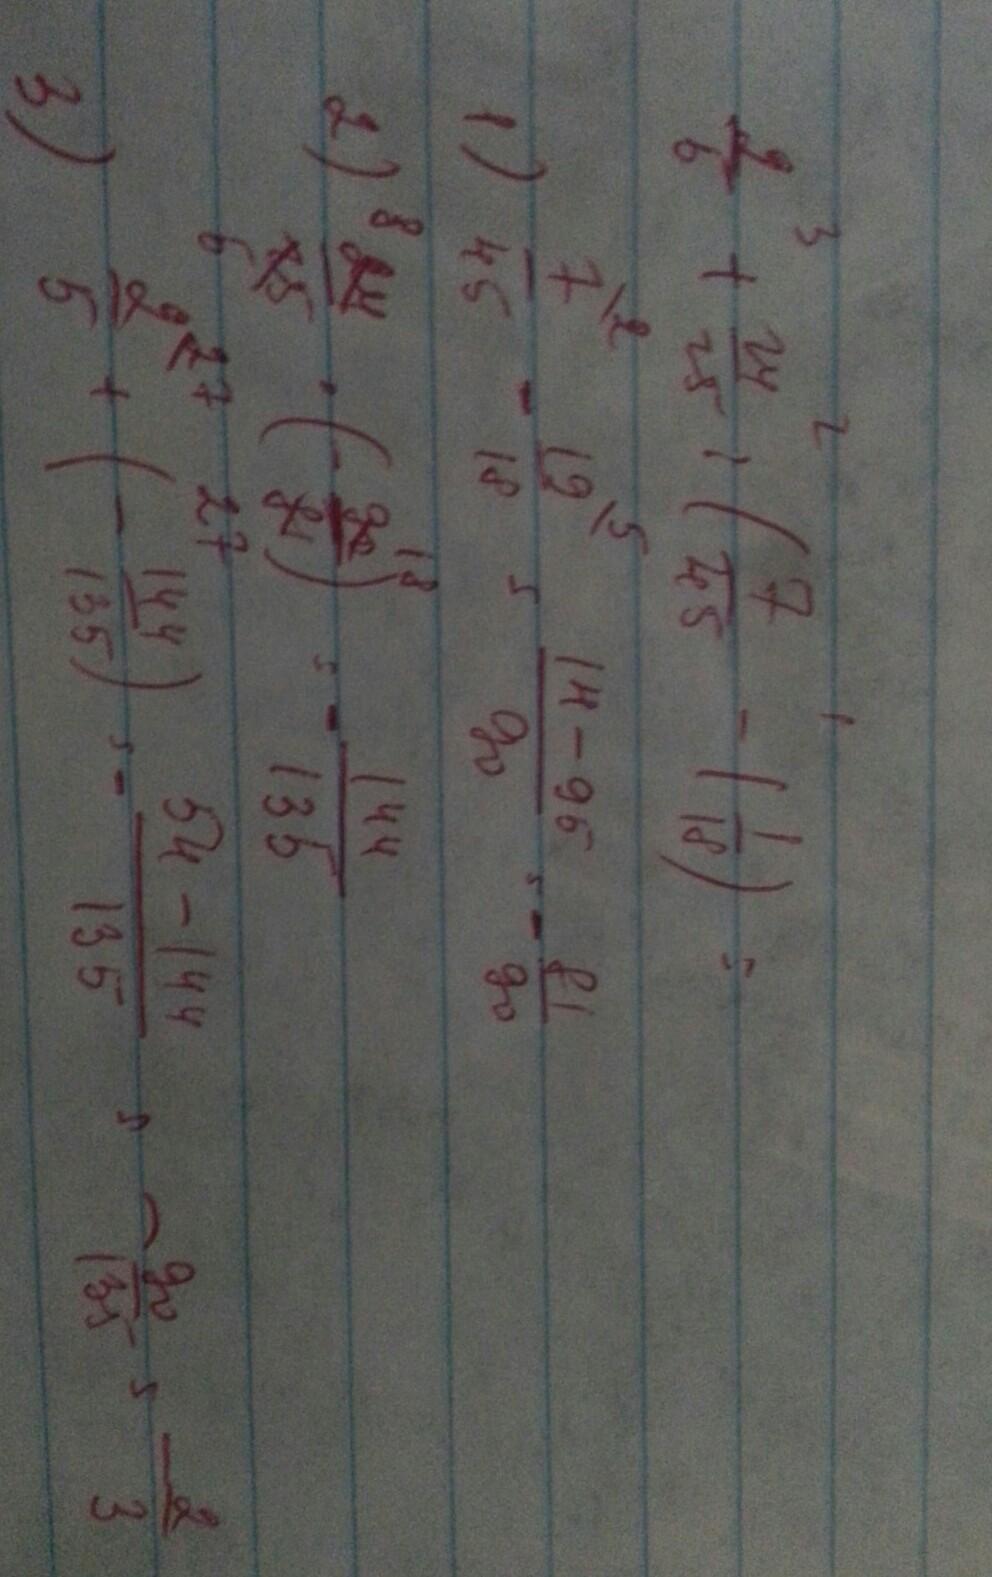 3 2 1
2/6 + 24/25 : (7/45 - 1 1/18) =
1) 7\2/45 - 19\5/18 = 14-95/90 = - 81/90
2) 8 24/25 · (- 90/81) 18 = - 144/135
3) 2\27/5 + (- 144/135) 27 = - 54-144/135 = - 90/135 = - 2/3